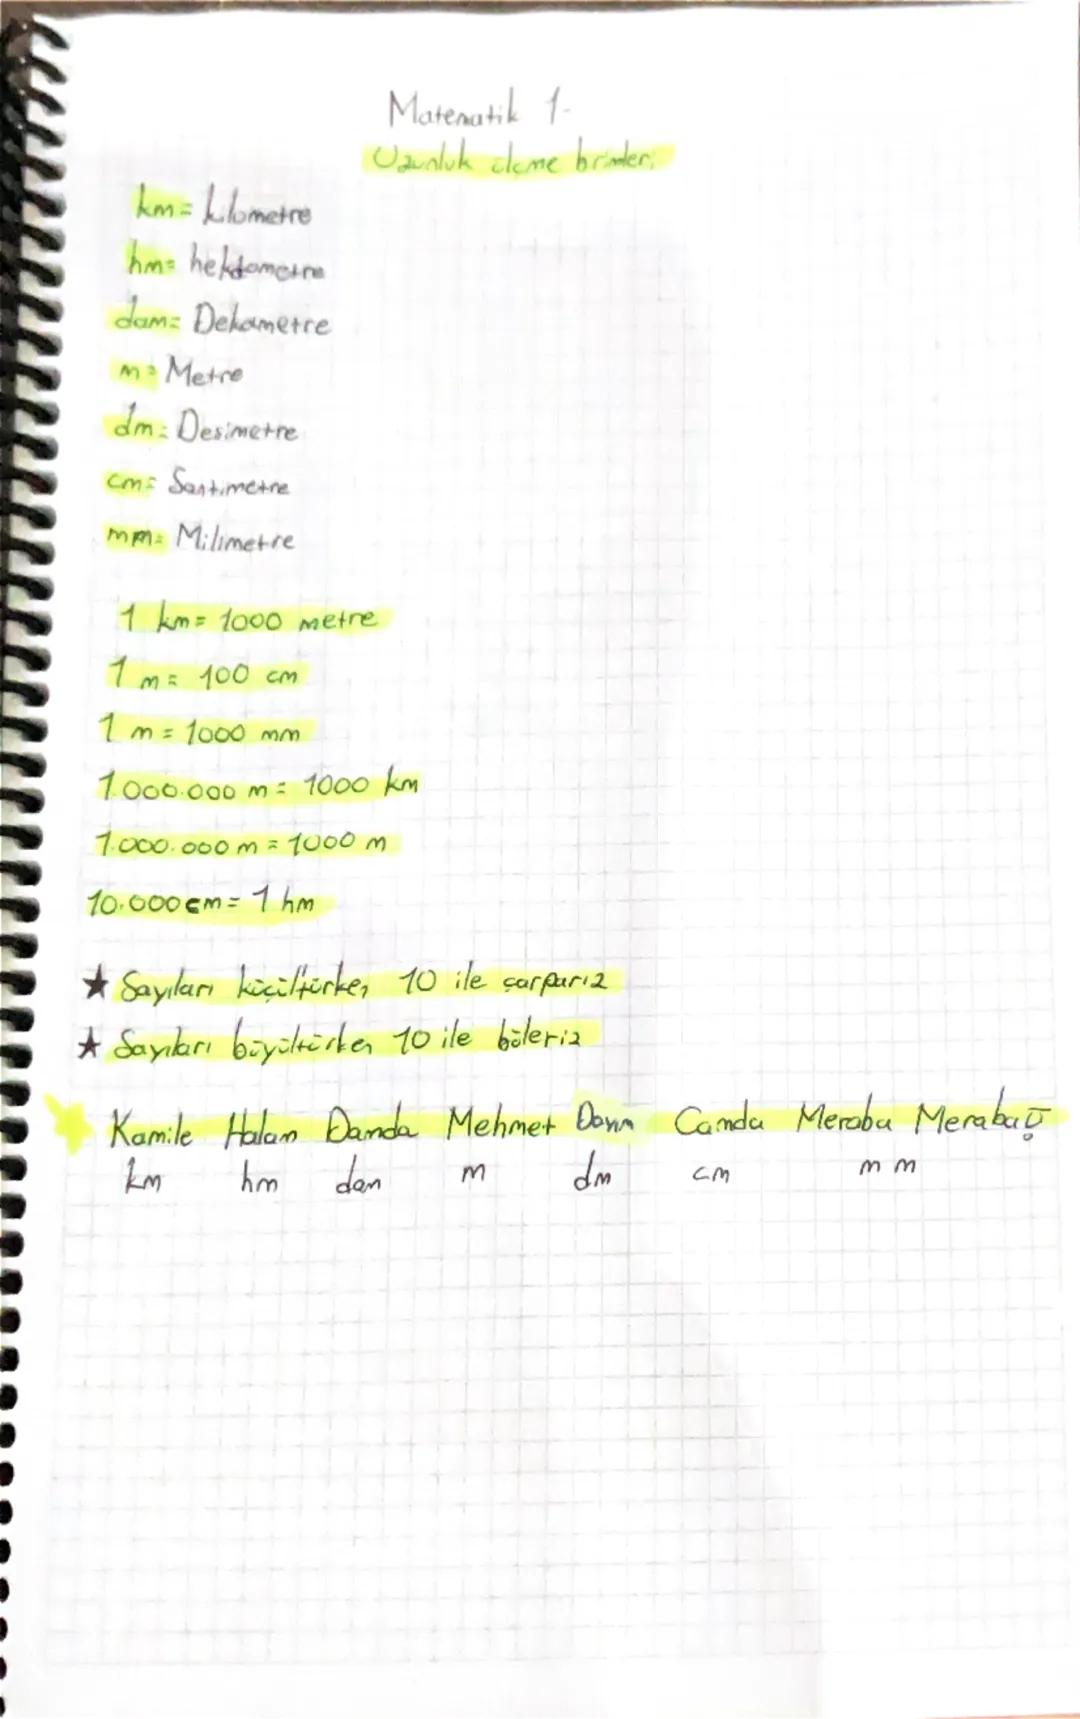 Matematik 1-
Uzunluk ölçme brimleri
km= kilometre
hm= hektometre
dam= Dekametre
m= Metre
dm= Desimetre
cm= Santimetre
mm= Milimetre
1 km= 1000 metre
1 m= 100 cm
1 m = 1000 mm
1.000.000 m = 1000 km
1.000.000 m = 1000 m
10.000 cm = 1 hm
★ Sayıları küçültürken 10 ile çarparız
★ Sayıları büyültürken 10 ile böleriz
Kamile Halam Damda Mehmet Damda Meraba Meraba
km hm dam m dm cm mm